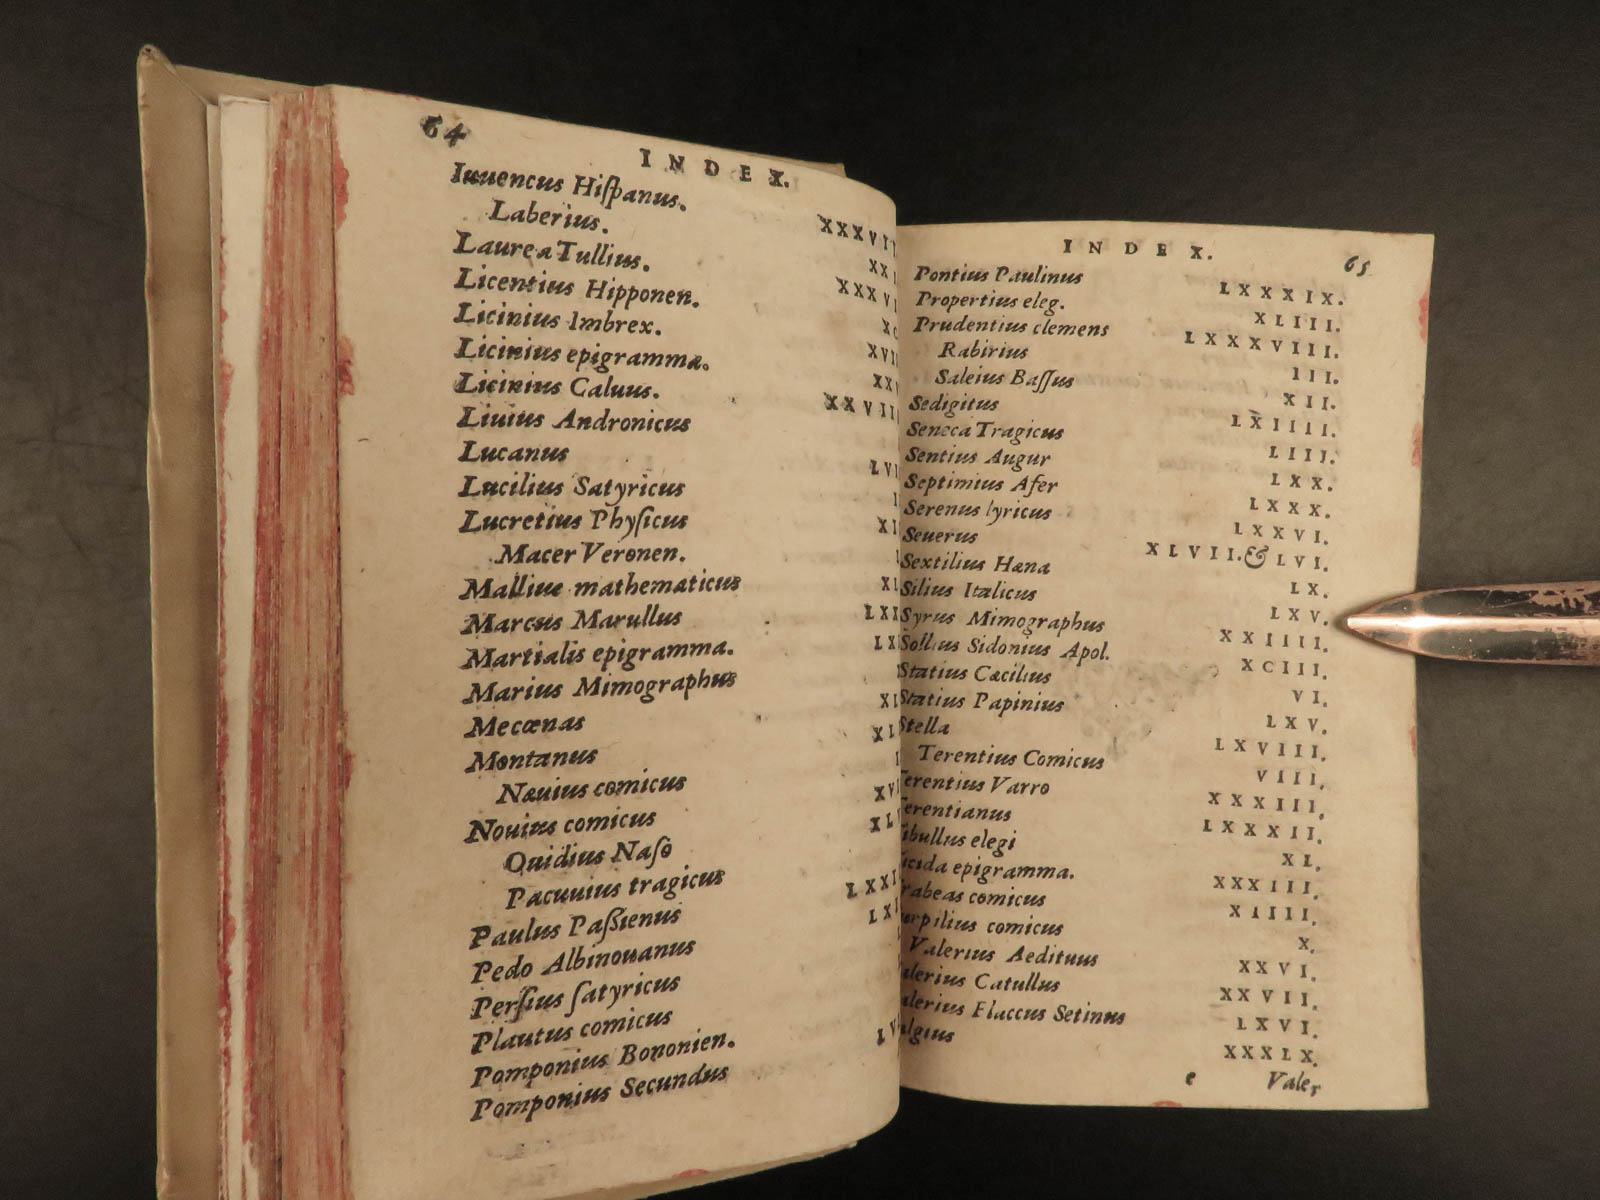 64
INDEX.
Iuuencus Hiſpanus.
Laberius.
Laurea Tullius.
Licentius Hipponen.
Licinius Imbrex.
Licinius epigramma.
Licinius Caluus.
Liuius Andronicus
Lucanus
Lucilius Satyricus
Lucretius Phyſicus
Macer Veronen.
Mallius mathematicus
Marcus Marullus
Martialis epigramma.
Marius Mimographus
Mecœnas
Montanus
Næuius comicus
Nouius comicus
Ouidius Naſo
Pacuuius tragicus
Paulus Paſsienus
Pedo Albinouanus
Perſius ſatyricus
Plautus comicus
Pomponius Bononien.
Pomponius Secundus
INDEX. 65
Pontius Paulinus LXXXIX.
Propertius eleg. XLIII.
Prudentius clemens LXXXVIII.
Rabirius III.
Saleius Baſſus XII.
Sedigitus LXIIII.
Seneca Tragicus LIII.
Sentius Augur LXX.
Septimius Afer LXXX.
Serenus lyricus LXXVI.
Seuerus XLVII.& LVI.
Sextilius Hæna LX.
Silius Italicus LXV.
Syrus Mimographus XXIIII.
Sollius Sidonius Apol. XCIII.
Statius Cæcilius VI.
Statius Papinius LXV.
Stella LXVIII.
Terentius Comicus VIII.
Terentius Varro XXXIII.
Terentianus LXXXII.
Tibullus elegi XL.
Ticida epigramma. XXXIII.
Trabeas comicus XIIII.
Turpilius comicus X.
Valerius Aedituus XXVI.
Valerius Catullus XXVII.
Valerius Flaccus Setinus LXVI.
Valgius XXXIX.
e Valer